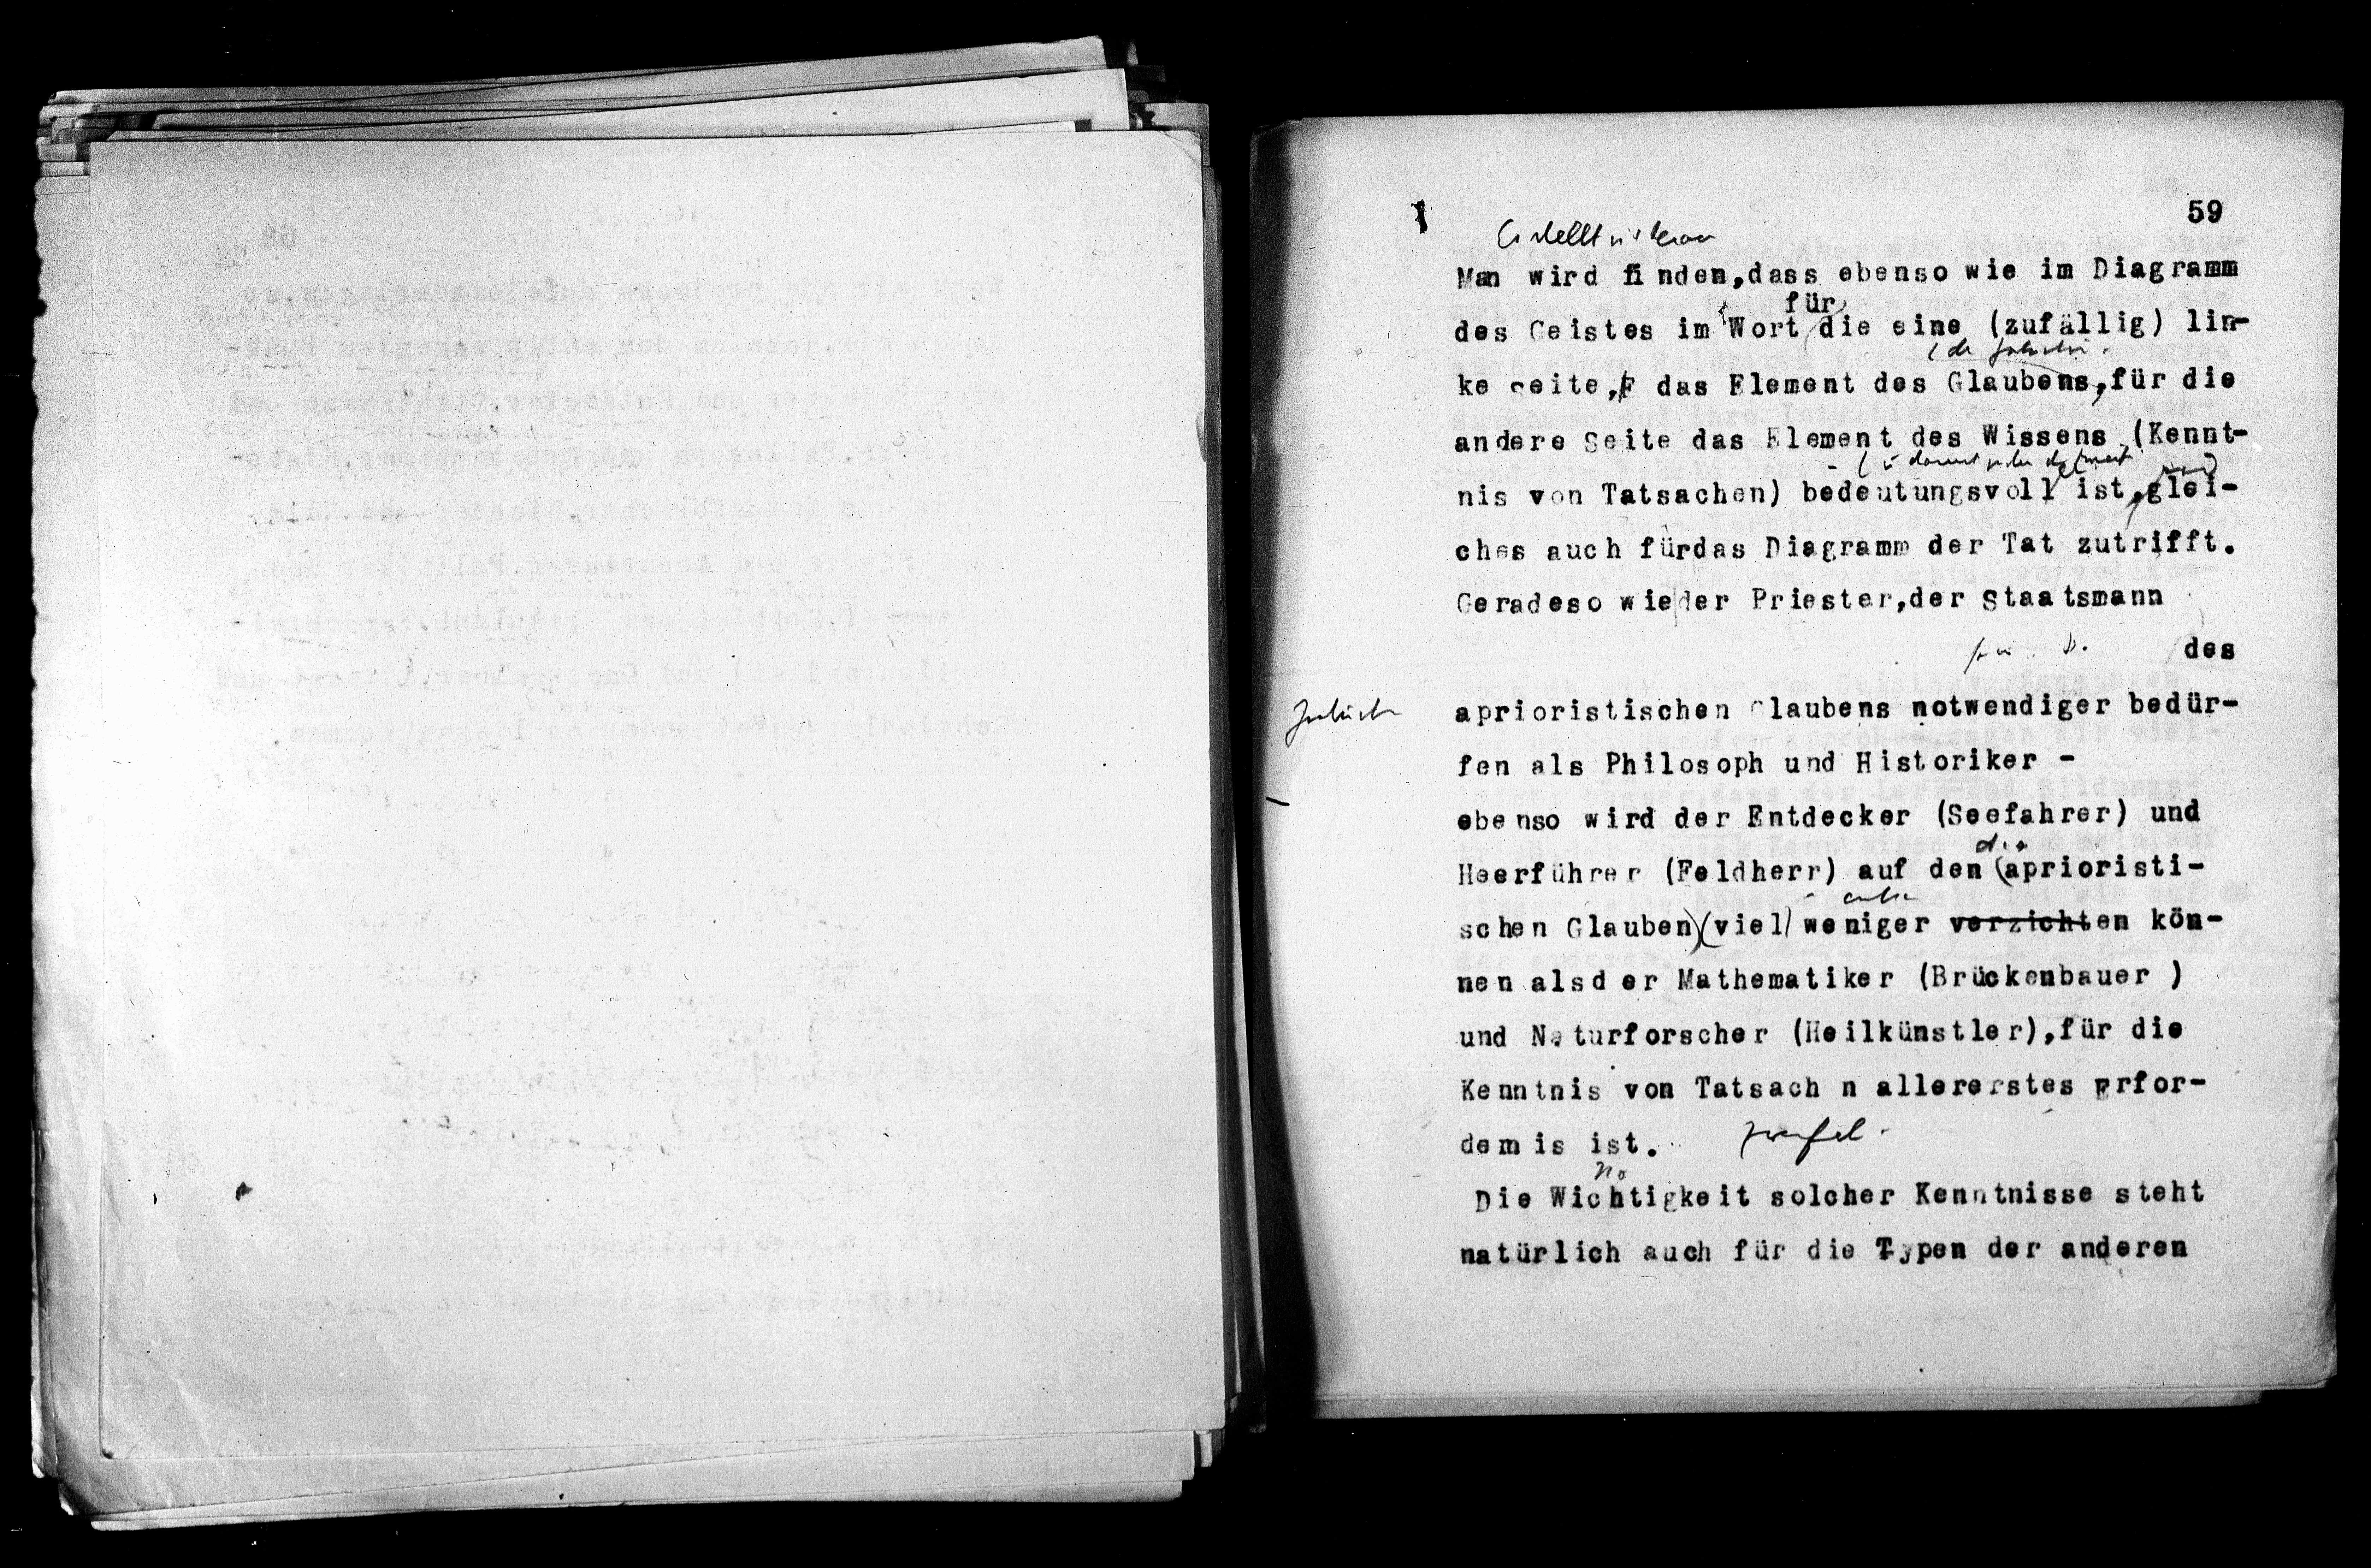 59
Man wird finden,dass ebenso wie im Diagramm
für
des Geistes im Wort die eine (zufällig) lin-
ke Seite, das Element des Glaubens,für die
andere Seite das Element des Wissens (Kennt-
nis von Tatsachen) bedeutungsvoll ist,glei-
ches auch fürdas Diagramm der Tat zutrifft.
Geradeso wieder Priester,der Staatsmann
des
aprioristischen Glaubens notwendiger bedür-
fen als Philosoph und Historiker -
ebenso wird der Entdecker (Seefahrer) und
Heerführer (Feldherr) auf den (aprioristi-
schen Glauben)(viel) weniger verzichten kön-
nen alsder Mathematiker (Brückenbauer )
und Naturforscher (Heilkünstler),für die
Kenntnis von Tatsach n allererstes erfor-
demis ist.
Die Wichtigkeit solcher Kenntnisse steht
natürlich auch für die Typen der anderen